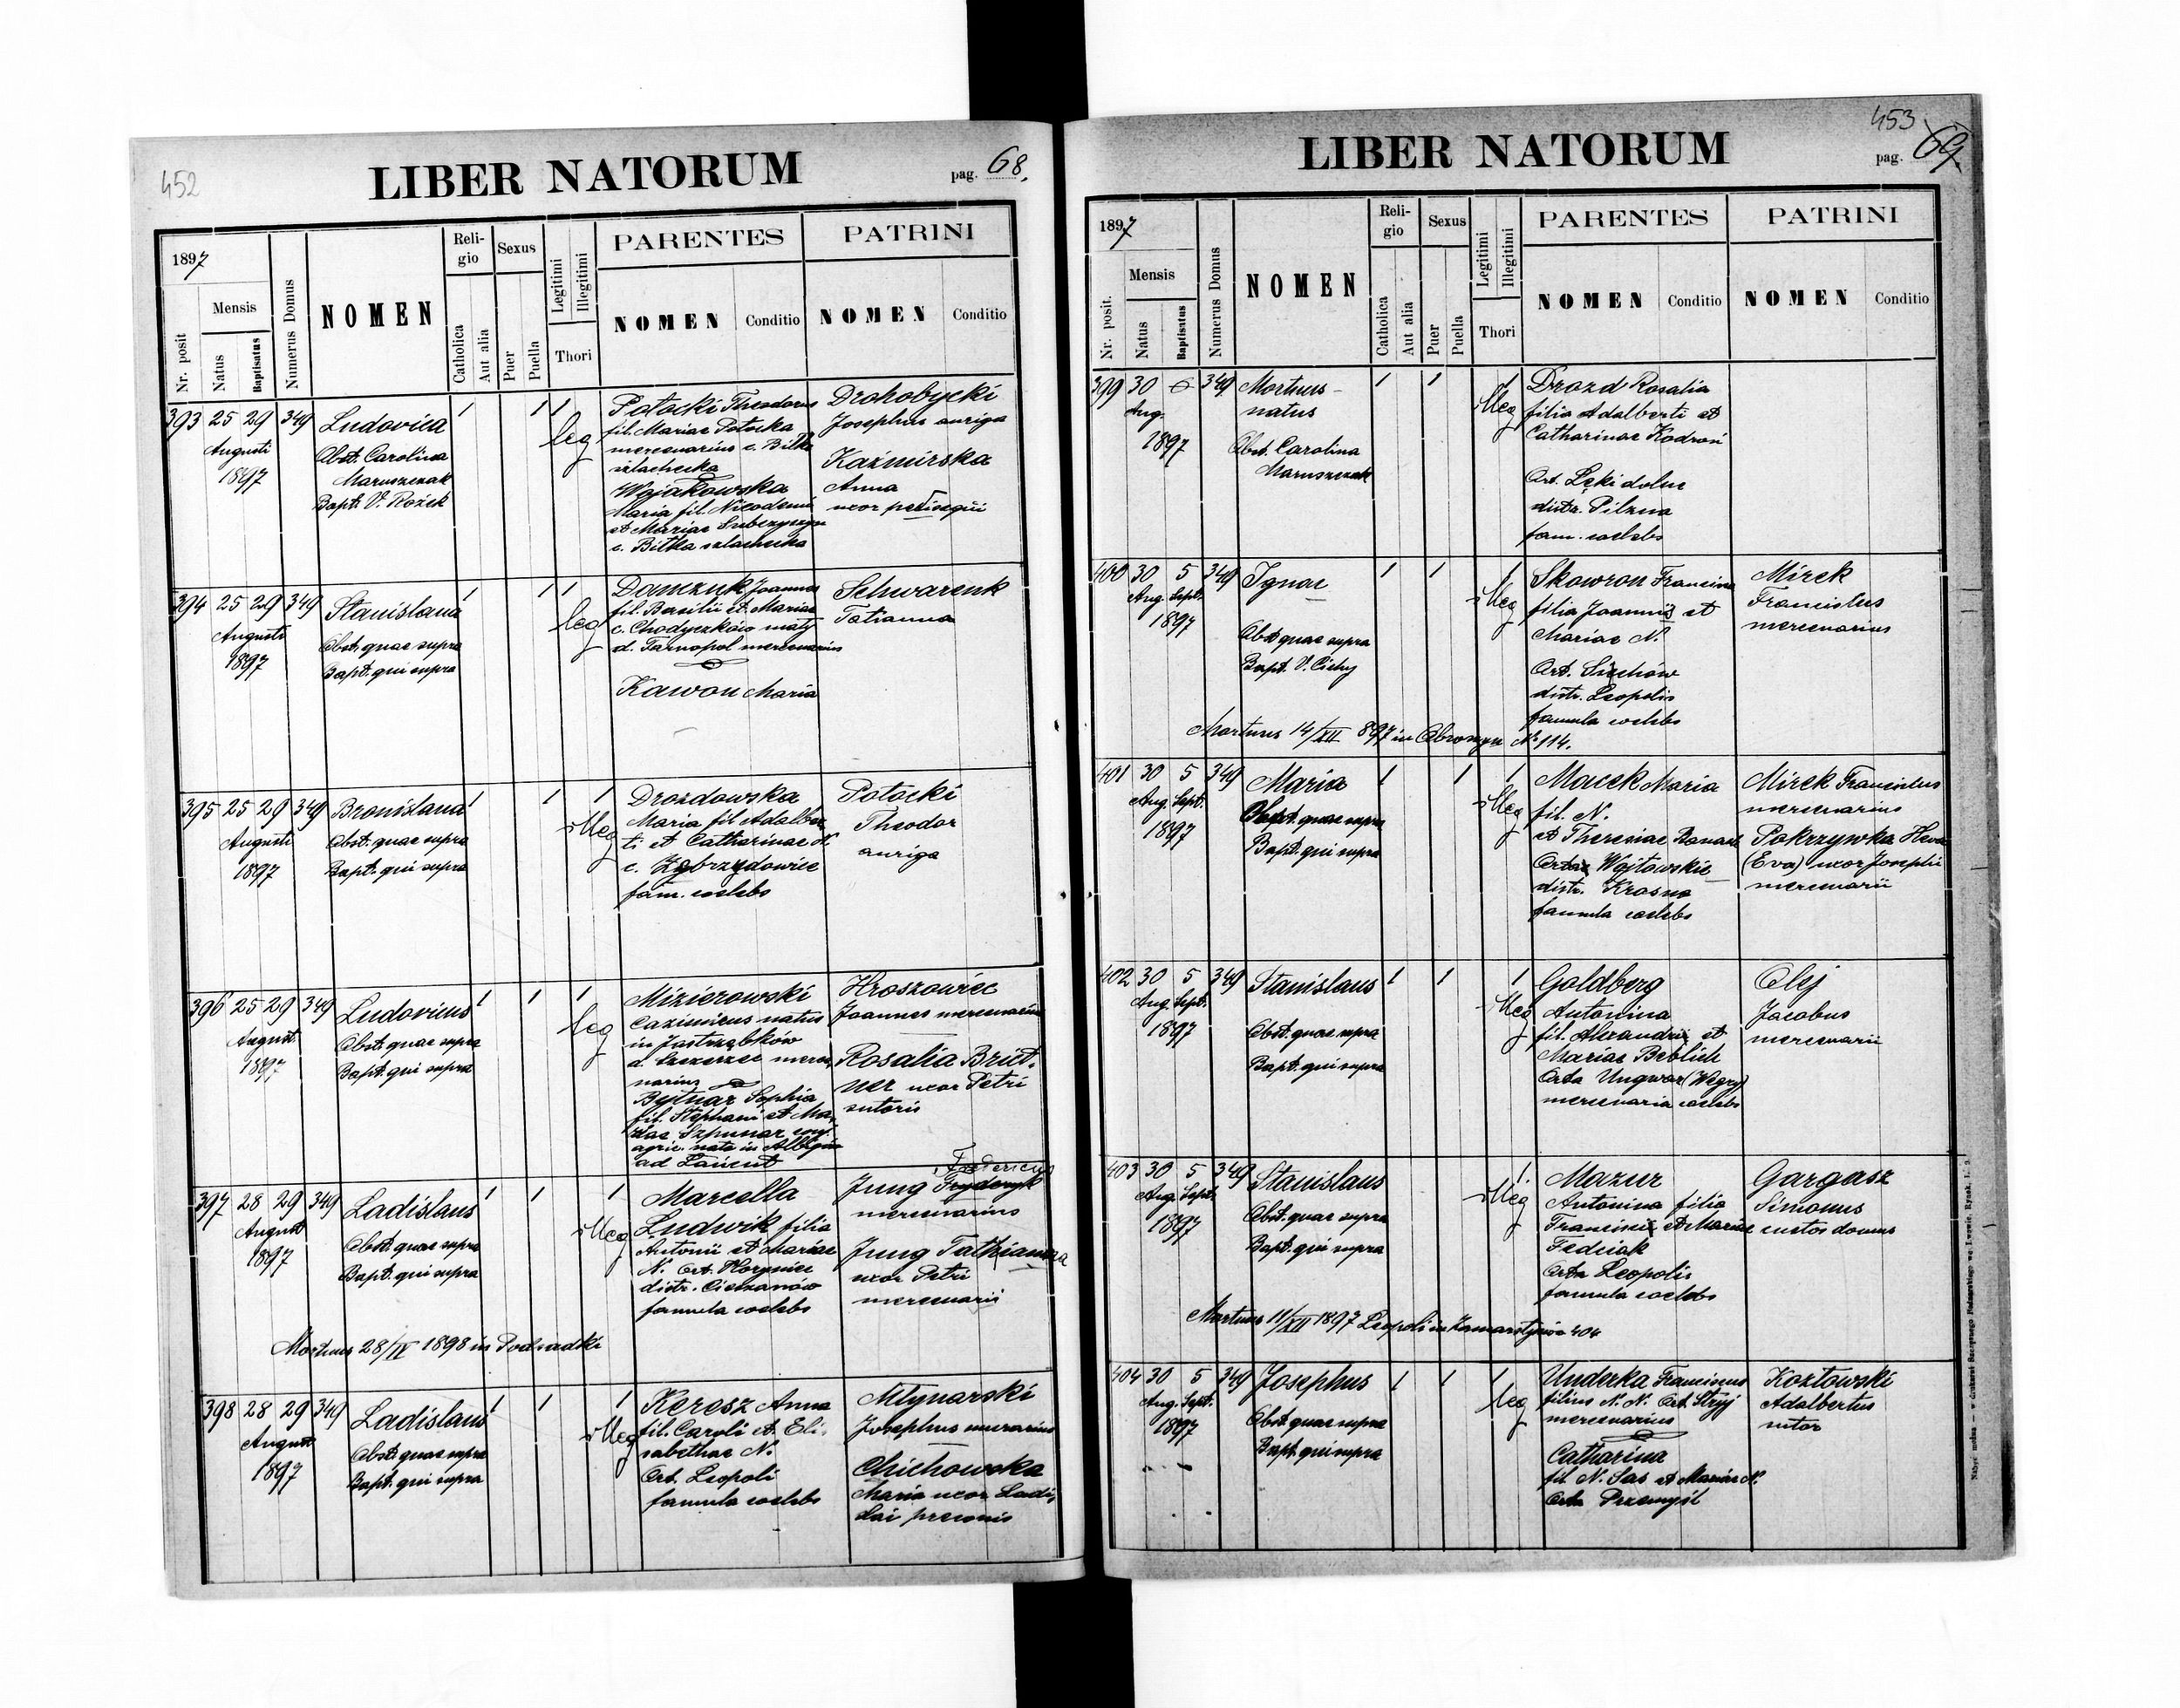 452
LIBER NATORUM
pag. 68.
1897
Nr. posit
Mensis
Natus
Baptisatus
Numerus Domus
NOMEN
Reli-
gio
Catholica
Aut alia
Sexus
Puer
Puella
Legitimi
Illegitimi
Thori
PARENTES
NOMEN
Conditio
PATRINI
NOMEN
Conditio
393 25 29 349
Augusti
1897
Ludovica
Obst. Carolina
Maruszczak
Bapt. V. Rożek
1 1 1
leg
Potocki Theodorus
fil. Mariae Potocka
mercenarius e. Bilka
szlachecka
Wojakowska
Maria fil. Nicodemi
et Mariae
e. Bilka szlachecka
Drohobycki
Josephus auriga
Kaźmirska
Anna
uxor
394 25 29 349
Augusti
1897
Stanislava
Obst. quae supra
Bapt. qui supra
1 1 1
leg
Damczuk Joannes
fil. Basilii et Mariae
e. Chodyczków mały
d. Tarnopol mercenarius
Kawon Maria
Schwarcuk
Tatianna
395 25 29 349
Augusti
1897
Bronislava
Obst. quae supra
Bapt. qui supra
1 1 1
illeg
Drozdowska
Maria fil Adalber
ti et Catharinae N.
e. Zabrzydowice
fam. coelebs
Potocki
Theodor
auriga
396 25 29 349
August.
1897
Ludovicus
Obst. quae supra
Bapt. qui supra
1 1 1
leg
Mizierowski
Cazimirus natus
in Jastrząbków
d. Szczerzec merce
narius
Bytnar Sophia
fil. Stephani et Ma
riae Szpunar
agric. nata in Albigowa
ad Łańcut
Hroszowiec
Joannes mercenarius
Rosalia Britt.
ner uxor Petri
sutoris
397 28 29 349
August
1897
Ladislaus
Obst. quae supra
Bapt. qui supra
1 1 1
illeg
Marcella
Ludwik filia
Antonii et Mariae
N. ort. Horyniec
distr. Cieszanów
famula coelebs
Fredericus
Jung Fryderyk
mercenarius
Jung Tatianna
uxor Petri
mercenarii
Mortuus 28/IV 1898 in Podsadki
398 28 29 349
August
1897
Ladislaus
Obst. quae supra
Bapt. qui supra
1 1 1
illeg
Keresz Anna
fil. Caroli et Eli
sabethae N.
Ort. Leopoli
famula coelebs
Młynarski
Josephus murarius
Chichowska
Maria uxor Ladis
lai praeconis
453
LIBER NATORUM
pag. 69.
1897
Nr. posit.
Mensis
Natus
Baptisatus
Numerus Domus
NOMEN
Reli-
gio
Catholica
Aut alia
Sexus
Puer
Puella
Legitimi
Illegitimi
Thori
PARENTES
NOMEN
Conditio
PATRINI
NOMEN
Conditio
399 30 349
Aug.
1897
Mortuus
natus
Obst. Carolina
Maruszczak
1 1 1
illeg
Drozd Rosalia
filia Adalberti et
Catharinae Kodroń
Ort. Łęki dolne
distr. Pilzna
fam. coelebs
400 30 5 349
Aug. Sept.
1897
Ignac
Obst quae supra
Bapt. V. Cichy
1 1 1
illeg
Skowron Francisca
filia Joannis et
Mariae N.
Ort. Sichów
distr. Leopolis
famula coelebs
Mirek
Franciscus
mercenarius
Mortuus 14/XII 897 in Obroszyn № 114.
401 30 5 349
Aug. Sept.
1897
Maria
Obst. quae supra
Bapt. qui supra
1 1 1
illeg
Macek Maria
fil. N.
et Theresiae Banas
Orta Wojtowskie
distr. Krosno
famula coelebs
Mirek Franciscus
mercenarius
Pokrzywka Heva
(Eva) uxor Josephi
mercenarii
402 30 5 349
Aug. Sept.
1897
Stanislaus
Obst. quae supra
Bapt. qui supra
1 1 1
illeg
Goldberg
Antonina
fil. Alexandri et
Mariae Beblich
Orta Ungwar (Węgry)
mercenaria coelebs
Olej
Jacobus
mercenarii
403 30 5 349
Aug. Sept.
1897
Stanislaus
Obst. quae supra
Bapt. qui supra
1
illeg
Mazur
Antonina filia
Francisci et Mariae
Fedciak
Orta Leopolis
famula coelebs
Gargasz
Simonus
custos domus
Mortuus 11/XII 1897 Leopoli in Zamarstynów 404
404 30 5 349
Aug. Sept.
1897
Josephus
Obst. quae supra
Bapt. qui supra
1 1 1
leg
Underka Franciscus
filius N. N. Ort. Stryj
mercenarius
Catharina
fil. N. Sas et Mariae N.
Orta Przemyśl
Kozłowski
Adalbertus
sutor